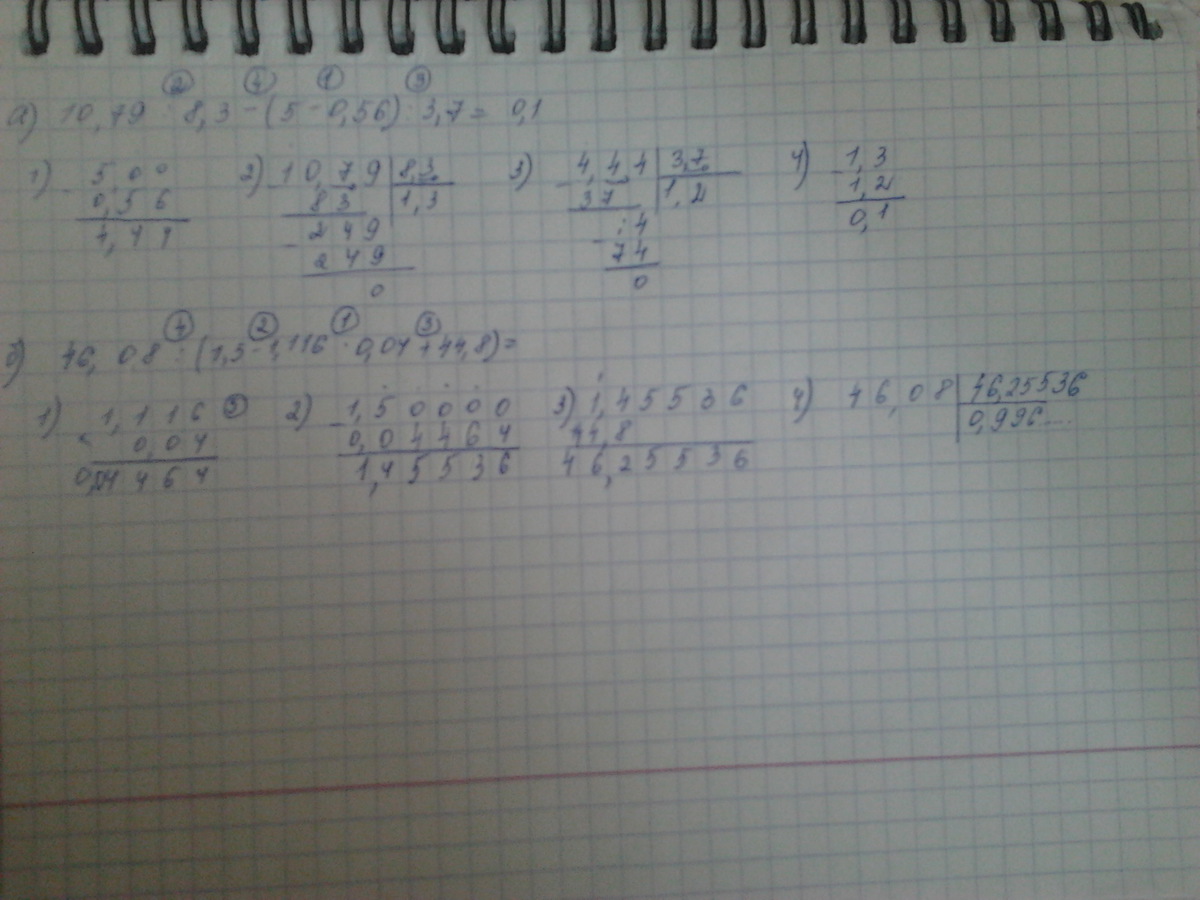 ② ④ ① ③
а) 10,79 : 8,3 - (5 - 0,56) : 3,7 = 0,1
1) 5,00 2) 10,79 | 8,3 3) 4,4,4 | 3,7 4) 1,3
- 0,56 - 83 | 1,3 - 37 | 1,2 - 1,2
4,44 249 74 0,1
- 249 - 74
0 0
④ ② ① ③
б) 46,08 : (1,5 - 1,116 · 0,04 + 44,8) =
1) 1,116 ③ 2) 1,50000 3) 1,45536 4) 46,08 | 46,25536
× 0,04 - 0,04464 44,8 0,996...
0,04464 1,45536 46,25536